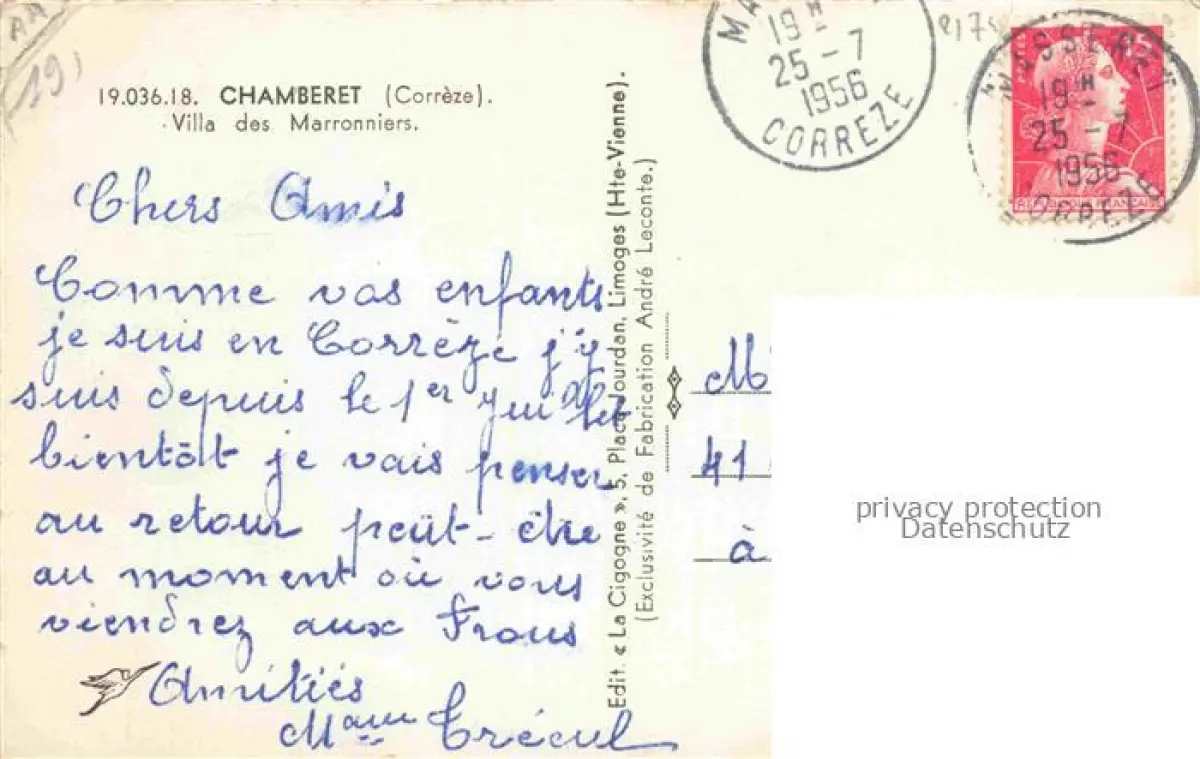 19.036.18. CHAMBERET (Corrèze).
Villa des Marronniers.
Chers Amis
Comme vos enfants
je suis en Corrèze j'y
suis depuis le 1er juillet
bientôt je vais penser
au retour peut-être
au moment où vous
viendrez aux Frous
Amitiés
Mame Trécul
Edit. « La Cigogne », 5, Place Jourdan, Limoges (Hte-Vienne).
(Exclusivité de Fabrication André Leconte.)
19H
25-7
1956
CORREZE
MASSERET
19H
25-7
1956
CORREZE
15
M
41
à
privacy protection
Datenschutz